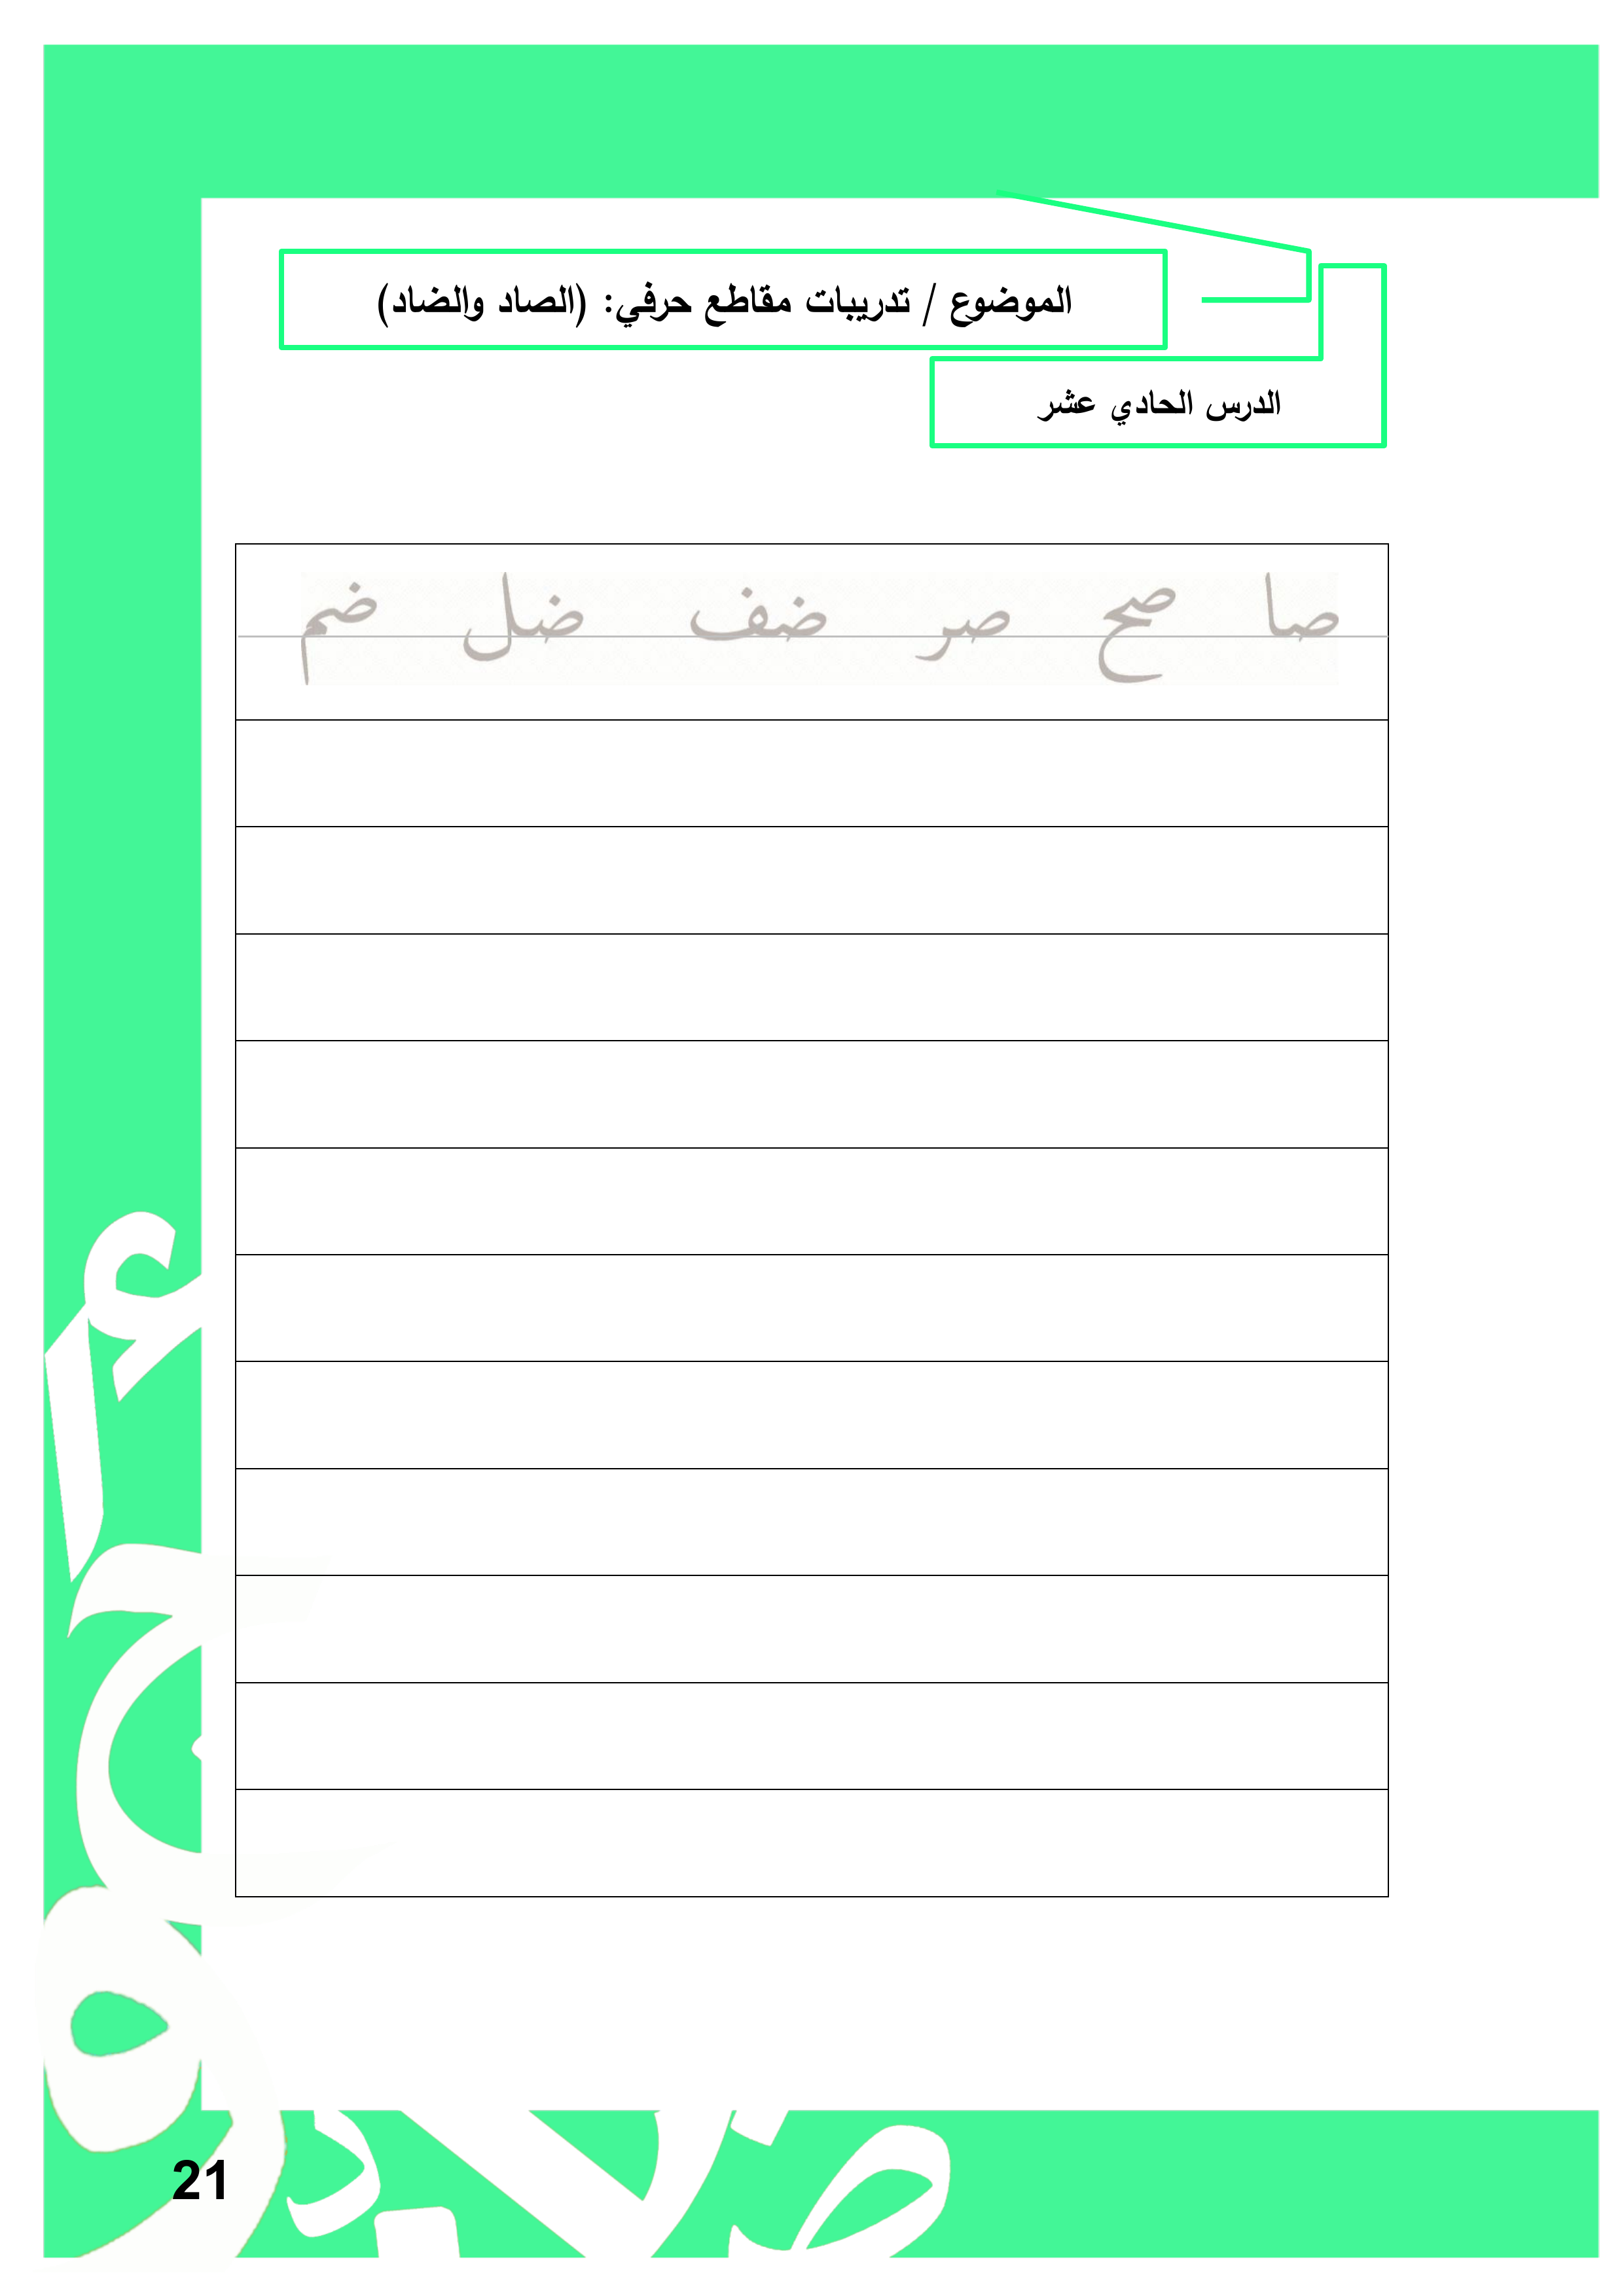 الموضوع / تدريبات مقاطع حرفي: (الصاد والضاد)
الدرس الحادي عشر
صا صحح صر ضف ضل ضم
21